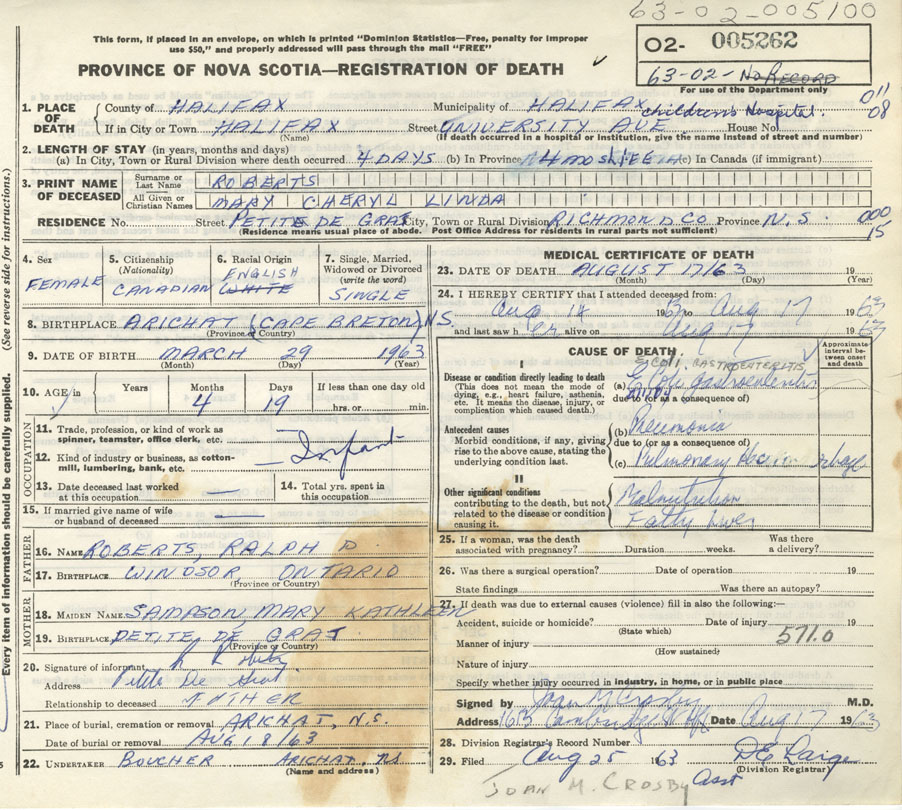 63-02-005100
This form, if placed in an envelope, on which is printed "Dominion Statistics—Free, penalty for improper
use $50," and properly addressed will pass through the mail "FREE"
02- 005262
PROVINCE OF NOVA SCOTIA—REGISTRATION OF DEATH
63-02-No RECORD
For use of the Department only
1. PLACE OF DEATH
County of HALIFAX Municipality of HALIFAX Children's Hospital. 011
If in City or Town HALIFAX Street UNIVERSITY AVE House No. 08
(Name) (If death occurred in a hospital or institution, give the name instead of street and number)
2. LENGTH OF STAY (in years, months and days)
(a) In City, Town or Rural Division where death occurred 4 DAYS (b) In Province 4 mos LIFE (c) In Canada (if immigrant)
3. PRINT NAME OF DECEASED
Surname or Last Name ROBERTS
All Given or Christian Names MARY CHERYL LINDA
RESIDENCE No. Street PETITE DE GRAT City, Town or Rural Division RICHMOND CO Province N.S. 000
(Residence means usual place of abode. Post Office Address for residents in rural parts not sufficient) 15
(See reverse side for instructions.)
Every item of information should be carefully supplied.
4. Sex
FEMALE
5. Citizenship
(Nationality)
CANADIAN
6. Racial Origin
ENGLISH
WHITE
7. Single, Married,
Widowed or Divorced
(write the word)
SINGLE
8. BIRTHPLACE ARICHAT (CAPE BRETON) N.S.
(Province or Country)
9. DATE OF BIRTH MARCH 29 1963
(Month) (Day) (Year)
10. AGE in
Years Months Days If less than one day old
4 19 hrs. or min.
OCCUPATION
11. Trade, profession, or kind of work as
spinner, teamster, office clerk, etc.
Infant
12. Kind of industry or business, as cotton-
mill, lumbering, bank, etc.
13. Date deceased last worked
at this occupation
14. Total yrs. spent in
this occupation
15. If married give name of wife
or husband of deceased
FATHER
16. NAME ROBERTS, RALPH D
17. BIRTHPLACE WINDSOR, ONTARIO
(Province or Country)
MOTHER
18. MAIDEN NAME SAMPSON, MARY KATHLEEN
19. BIRTHPLACE PETITE DE GRAT
(Province or Country)
20. Signature of informant
Address Petite De Grat
Relationship to deceased FATHER
21. Place of burial, cremation or removal ARICHAT, N.S.
Date of burial or removal AUG 18/63
22. UNDERTAKER BOUCHER ARICHAT, NS
(Name and address)
MEDICAL CERTIFICATE OF DEATH
23. DATE OF DEATH AUGUST 17/63 19
(Month) (Day) (Year)
24. I HEREBY CERTIFY that I attended deceased from:
Aug 14 1963 to Aug 17 1963
and last saw her alive on Aug 17 1963
CAUSE OF DEATH
Approximate interval between onset and death
E COLI, GASTROENTERITIS
I
Disease or condition directly leading to death
(This does not mean the mode of dying, e.g., heart failure, asthenia, etc. It means the disease, injury, or complication which caused death.)
(a) E. Coli gastroenteritis
due to (or as a consequence of)
Antecedent causes
Morbid conditions, if any, giving rise to the above cause, stating the underlying condition last.
(b) Pneumonia
due to (or as a consequence of)
(c) Pulmonary
II
Other significant conditions
contributing to the death, but not related to the disease or condition causing it.
Malnutrition
Fatty liver
25. If a woman, was the death
associated with pregnancy? Duration weeks. Was there
a delivery?
26. Was there a surgical operation? Date of operation 19
State findings Was there an autopsy?
27. If death was due to external causes (violence) fill in also the following:—
Accident, suicide or homicide? Date of injury 19
(State which)
Manner of injury 571.0
(How sustained)
Nature of injury
Specify whether injury occurred in industry, in home, or in public place
Signed by Joan M Crosby M.D.
Address Cambridge St Hfx Date Aug 17 1963
28. Division Registrar's Record Number
29. Filed Aug 25 1963
(Division Registrar)
Asst
JOAN M. CROSBY